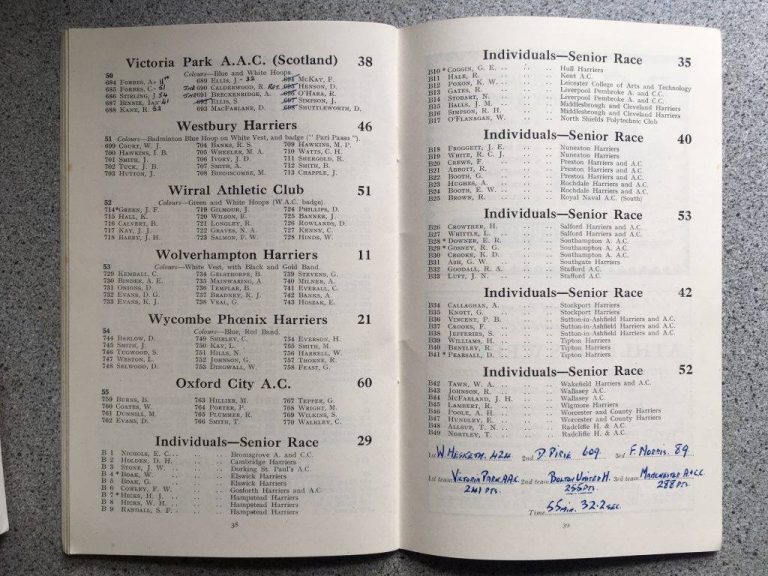 Victoria Park A.A.C. (Scotland) 38
50 Colours—Blue and White Hoops
684 Forbes, A. 689 Ellis, J. McKay, F.
685 Forbes, C. 690 Calderwood, R. Henson, D.
686 Stirling, J. Breckenridge, A. O'Hare, R.
687 Binnie, Ian 692 Ellis, S. Simpson, J.
688 Kane, R. 693 MacFarlane, D. Shuttleworth, D.
Westbury Harriers 46
51 Colours—Badminton Blue Hoop on White Vest, and badge ("Pari Passu").
699 Court, W. J. 704 Banks, R. S. 709 Hawkins, M. P.
700 Hawkins, I. B. 705 Wheeler, M. A. 710 Watts, C. H.
701 Smith, J. 706 Ivory, J. D. 711 Shergold, R.
702 Tuck, J. B. 707 Smith, A. 712 Smith, B.
703 Hutton, J. 708 Biddiscombe, M. 713 Chapple, J.
Wirral Athletic Club 51
52 Colours—Green and White Hoops (W.A.C. badge).
714 *Green, J. F. 719 Gilmour, J. 724 Phillips, D.
715 Hall, K. 720 Wilson, R. 725 Banner, J.
716 Calvert, B. 721 Longley, R. 726 Rowlands, D.
717 Kay, J. J. 722 Graves, N. A. 727 Kenny, C.
718 Harry, J. H. 723 Salmon, F. W. 728 Hinds, W.
Wolverhampton Harriers 11
53 Colours—White Vest, with Black and Gold Band.
729 Kendall, C. 734 Gelsthorpe, B. 739 Stevens, G.
730 Binder, A. E. 735 Mainwaring, A. 740 Milner, A.
731 Onions, D. 736 Templar, B. 741 Everall, C.
732 Evans, D. G. 737 Bradney, R. J. 742 Banks, A.
733 Evans, K. J. 738 Veal, G. 743 Hoszak, E.
Wycombe Phœnix Harriers 21
54 Colours—Blue, Red Band.
744 Barlow, D. 749 Shirley, C. 754 Everson, H.
745 Smith, J. 750 Kay, L. 755 Smith, M.
746 Tugwood, S. 751 Hills, N. 756 Harnell, W.
747 Weston, L. 752 Johnson, G. 757 Thorne, R.
748 Selwood, D. 753 Dingwall, W. 758 Feast, G.
Oxford City A.C. 60
55
759 Burns, B. 763 Hillier, M. 767 Tepper, G.
760 Coates, W. 764 Porter, P. 768 Wright, M.
761 Dunsden, M. 765 Plummer, R. 769 Wilkins, S.
762 Evans, D. 766 Smith, T. 770 Walkley, C.
Individuals—Senior Race 29
B 1 Nichols, E. C. Bromsgrove A. and C.C.
B 2 Holden, D. H. Cambridge Harriers
B 3 Stone, J. W. Dorking St. Paul's A.C.
B 4 *Boak, W. Elswick Harriers
B 5 Boak, G. Elswick Harriers
B 6 Cowley, F. W. Gosforth Harriers and A.C.
B 7 *Hicks, H. J. Hampstead Harriers
B 8 Hicks, W. H. Hampstead Harriers
B 9 Randall, S. F. Hampstead Harriers
38
Individuals—Senior Race 35
B10 *Coggin, G. E. Hull Harriers
B11 Hale, R. Kent A.C.
B12 Poxon, K. W. Leicester College of Arts and Technology
B13 Gates, R. Liverpool Pembroke A. and C.C.
B14 Stobart, N. Liverpool Pembroke A. and C.C.
B15 Balls, J. M. Middlesbrough and Cleveland Harriers
B16 Simpson, R. H. Middlesbrough and Cleveland Harriers
B17 O'Flanagan, W. North Shields Polytechnic Club
Individuals—Senior Race 40
B18 Froggett, J. E. Nuneaton Harriers
B19 White, R. C. J. Nuneaton Harriers
B20 Crews, F. Preston Harriers and A.C.
B21 Abbott, R. Preston Harriers and A.C.
B22 Booth, G. Preston Harriers and A.C.
B23 Hughes, A. Rochdale Harriers and A.C.
B24 Booth, E. W. Rochdale Harriers and A.C.
B25 Brown, R. Royal Naval A.C. (South)
Individuals—Senior Race 53
B26 Crowther, H. Salford Harriers and A.C.
B27 Whittle, L. Salford Harriers and A.C.
B28 *Downer, E. R. Southampton A. A.C.
B29 *Gosney, R. G. Southampton A. A.C.
B30 Crooke, K. D. Southampton A. A.C.
B31 Ash, G. W. Southgate Harriers
B32 Goodall, R. A. Stafford A.C.
B33 Luft, J. N. Stafford A.C.
Individuals—Senior Race 42
B34 Callaghan, A. Stockport Harriers
B35 Knott, G. Stockport Harriers
B36 Vincent, P. B. Sutton-in-Ashfield Harriers and A.C.
B37 Crooks, F. Sutton-in-Ashfield Harriers and A.C.
B38 Jefferies, S. Sutton-in-Ashfield Harriers and A.C.
B39 Williams, H. Tipton Harriers
B40 Bentley, R. Tipton Harriers
B41 *Pearsall, D. Tipton Harriers
Individuals—Senior Race 52
B42 Tawn, W. A. Wakefield Harriers and A.C.
B43 Johnson, R. Wallasey A.C.
B44 McFarland, J. H. Wallasey A.C.
B45 Lambert, R. Wigmore Harriers
B46 Poole, A. H. Worcester and County Harriers
B47 Hundley, E. Worcester and County Harriers
B48 Allsop, T. N. Radcliffe H. & A.C.
B49 Nortley, T. Radcliffe H. & A.C.
1st W Hesketh. 424 2nd D. Pirie 609 3rd F Norris. 89
1st team Victoria Park AAC 2nd team Bolton United H. 3rd team Manchester A&CC.
241 pts. 255 pts. 288 pts.
Time 55 min. 32.2 sec.
39